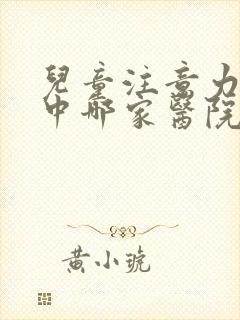 兒童注意力
中哪家醫院
黃小琥